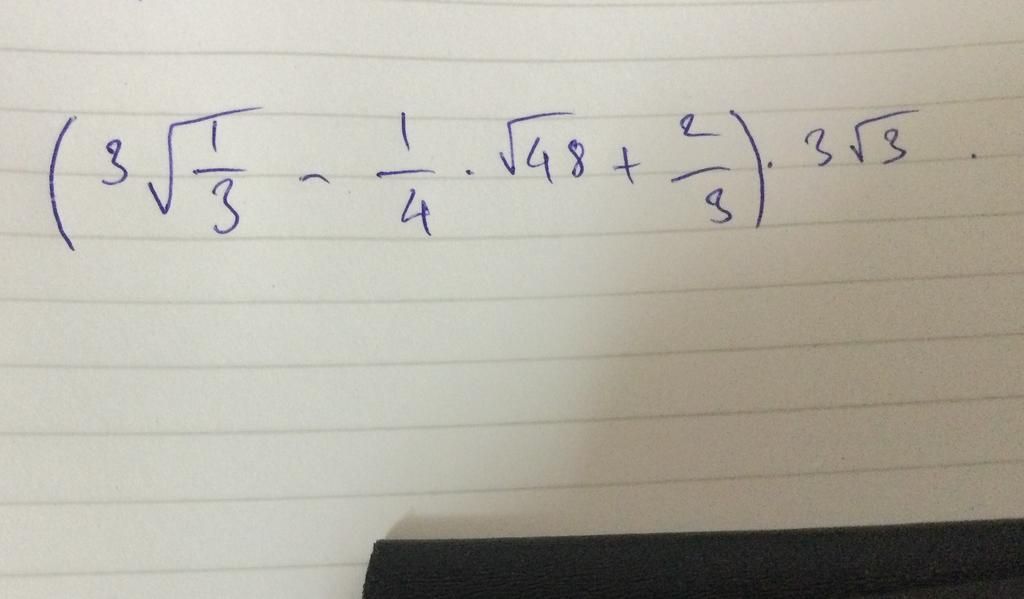 (3√(1/3) - 1/4 . √48 + 2/3) . 3√3 .